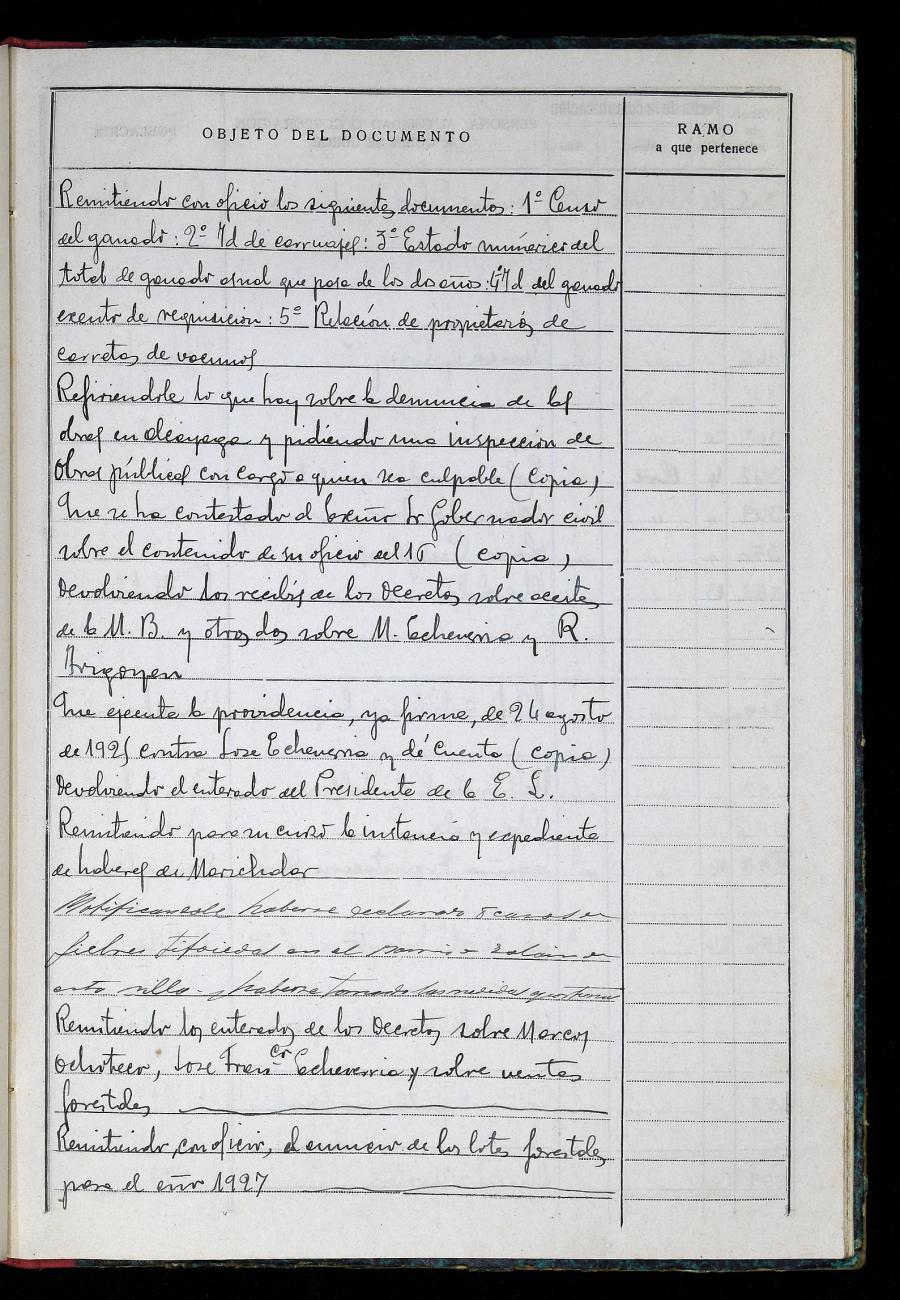 OBJETO DEL DOCUMENTO
RAMO
a que pertenece
Remitiendo con oficio los siguientes documentos: 1º Censo
del ganado: 2º Id de carruajes: 3º Estado numérico del
total de ganado asnal que pasa de los dos años: 4º Id del ganado
exento de requisicion: 5º Relación de propietarios de
carretas de vacunos
Refiriendole lo que hay sobre la denuncia de las
obras en Alcayaga y pidiendo una inspección de
Obras públicas con cargo a quien sea culpable (Copia)
Que se ha contestado al Excmo Sr Gobernador civil
sobre el contenido de su oficio del 15 (copia)
Devolviendo los recibís de los Decretos sobre aceites
de la M. B. y otros dos sobre M. Echeverria y R.
Irigoyen
Que ejecute la providencia, ya firme, de 24 agosto
de 1925 contra Jose Echeverria y dé cuenta (copia)
Devolviendo el enterado del Presidente de la E. L.
Remitiendo para su curso la instancia y expediente
de haberes de Marichalar
Notificandole haberse declarado 8 casos de
fiebres tifoideas en el barrio Zalain de
esta villa y haberse tomado las medidas
Remitiendo los enterados de los Decretos sobre Marcos
Ochoteco, Jose Francco Echeverria y sobre ventas
forestales
Remitiendo, con oficio, el anuncio de los lotes forestales
para el año 1927